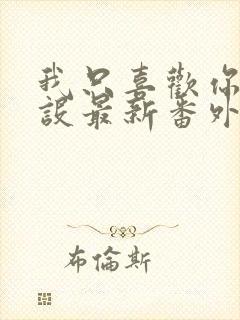 我只喜歡你
設最新番外
布倫斯